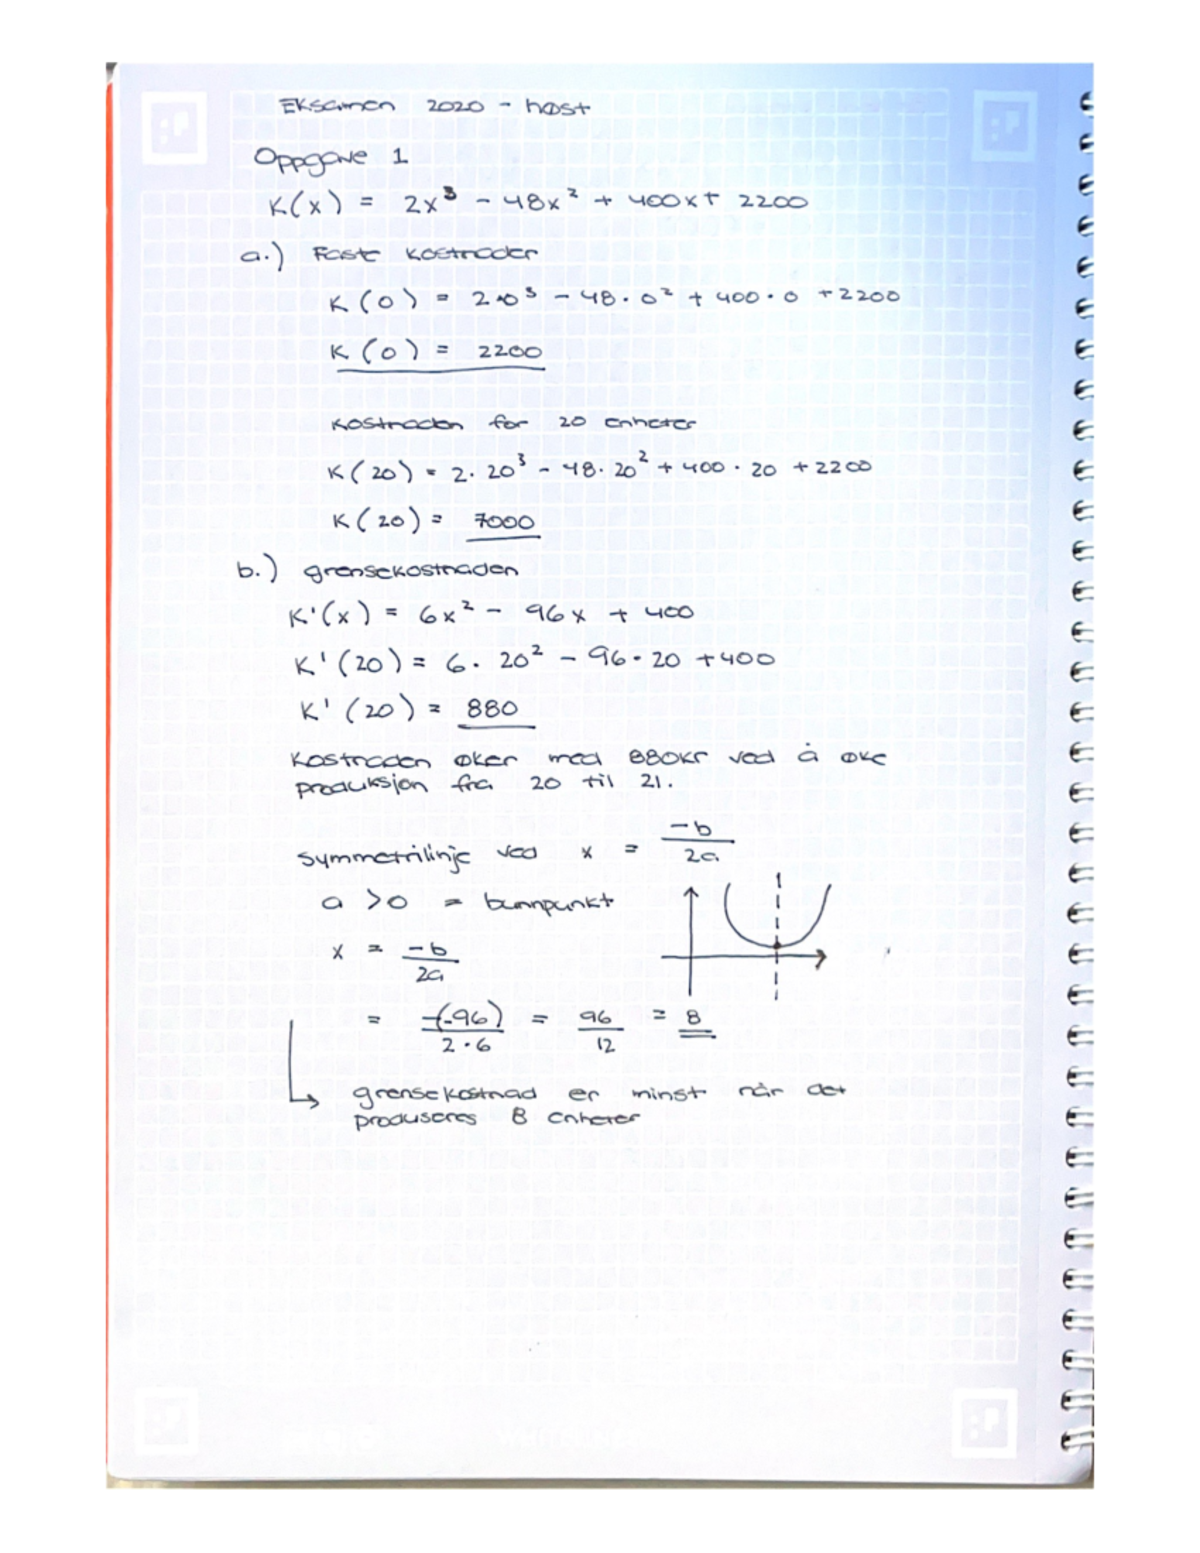 Eksamen 2020 - høst
Oppgave 1
K(x) = 2x³ - 48x² + 400x + 2200
a.) Fast kostnader
K(0) = 2·0³ - 48·0² + 400·0 + 2200
K(0) = 2200
Kostnaden for 20 enheter
K(20) = 2·20³ - 48·20² + 400·20 + 2200
K(20) = 7000
b.) grensekostnaden
K'(x) = 6x² - 96x + 400
K'(20) = 6·20² - 96·20 + 400
K'(20) = 880
Kostnaden øker med 880kr ved å øke
produksjon fra 20 til 21.
symmetrilinje ved x = -b/2a
a > 0 = bunnpunkt
x = -b/2a
= -(-96)/2·6 = 96/12 = 8
grensekostnad er minst når det
produseres 8 enheter